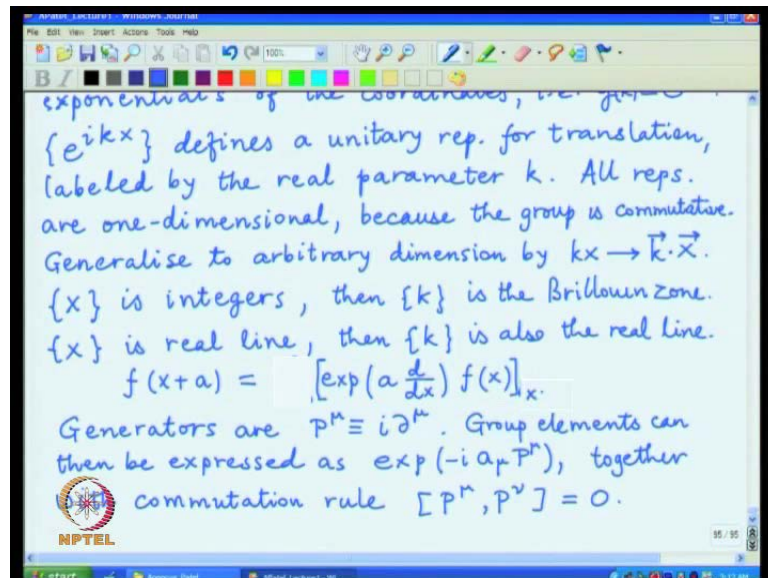 APatel_Lecture1 - Windows Journal
File Edit View Insert Actions Tools Help
100%
B I
exponentials of the coordinates, i.e.
{e^{ikx}} defines a unitary rep. for translation,
labeled by the real parameter k. All reps.
are one-dimensional, because the group is commutative.
Generalise to arbitrary dimension by kx → k⃗·x⃗.
{x} is integers, then {k} is the Brillouin zone.
{x} is real line, then {k} is also the real line.
f(x+a) = [exp(a d/dx) f(x)]_x.
Generators are P^μ ≡ i∂^μ. Group elements can
then be expressed as exp(-i a_μ P^μ), together
with commutation rule [P^μ, P^ν] = 0.
NPTEL
95/95
start